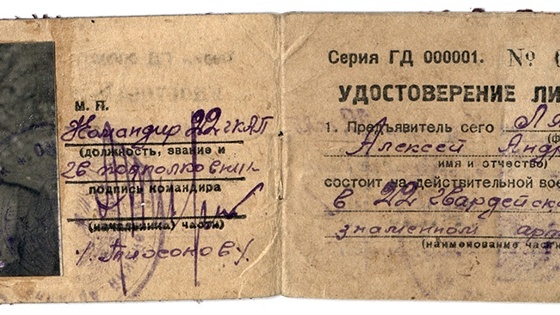 М. П.
Командир 22 гКАП
(должность, звание и
гв подполковник
подпись командира
(начальника) части)
Серия ГД 000001. №
УДОСТОВЕРЕНИЕ ЛИ
1. Предъявитель сего
Алексей Андр
имя и отчество)
состоит на действительной вое
в 22 Гвардейско
знаменном арт
(наименование част